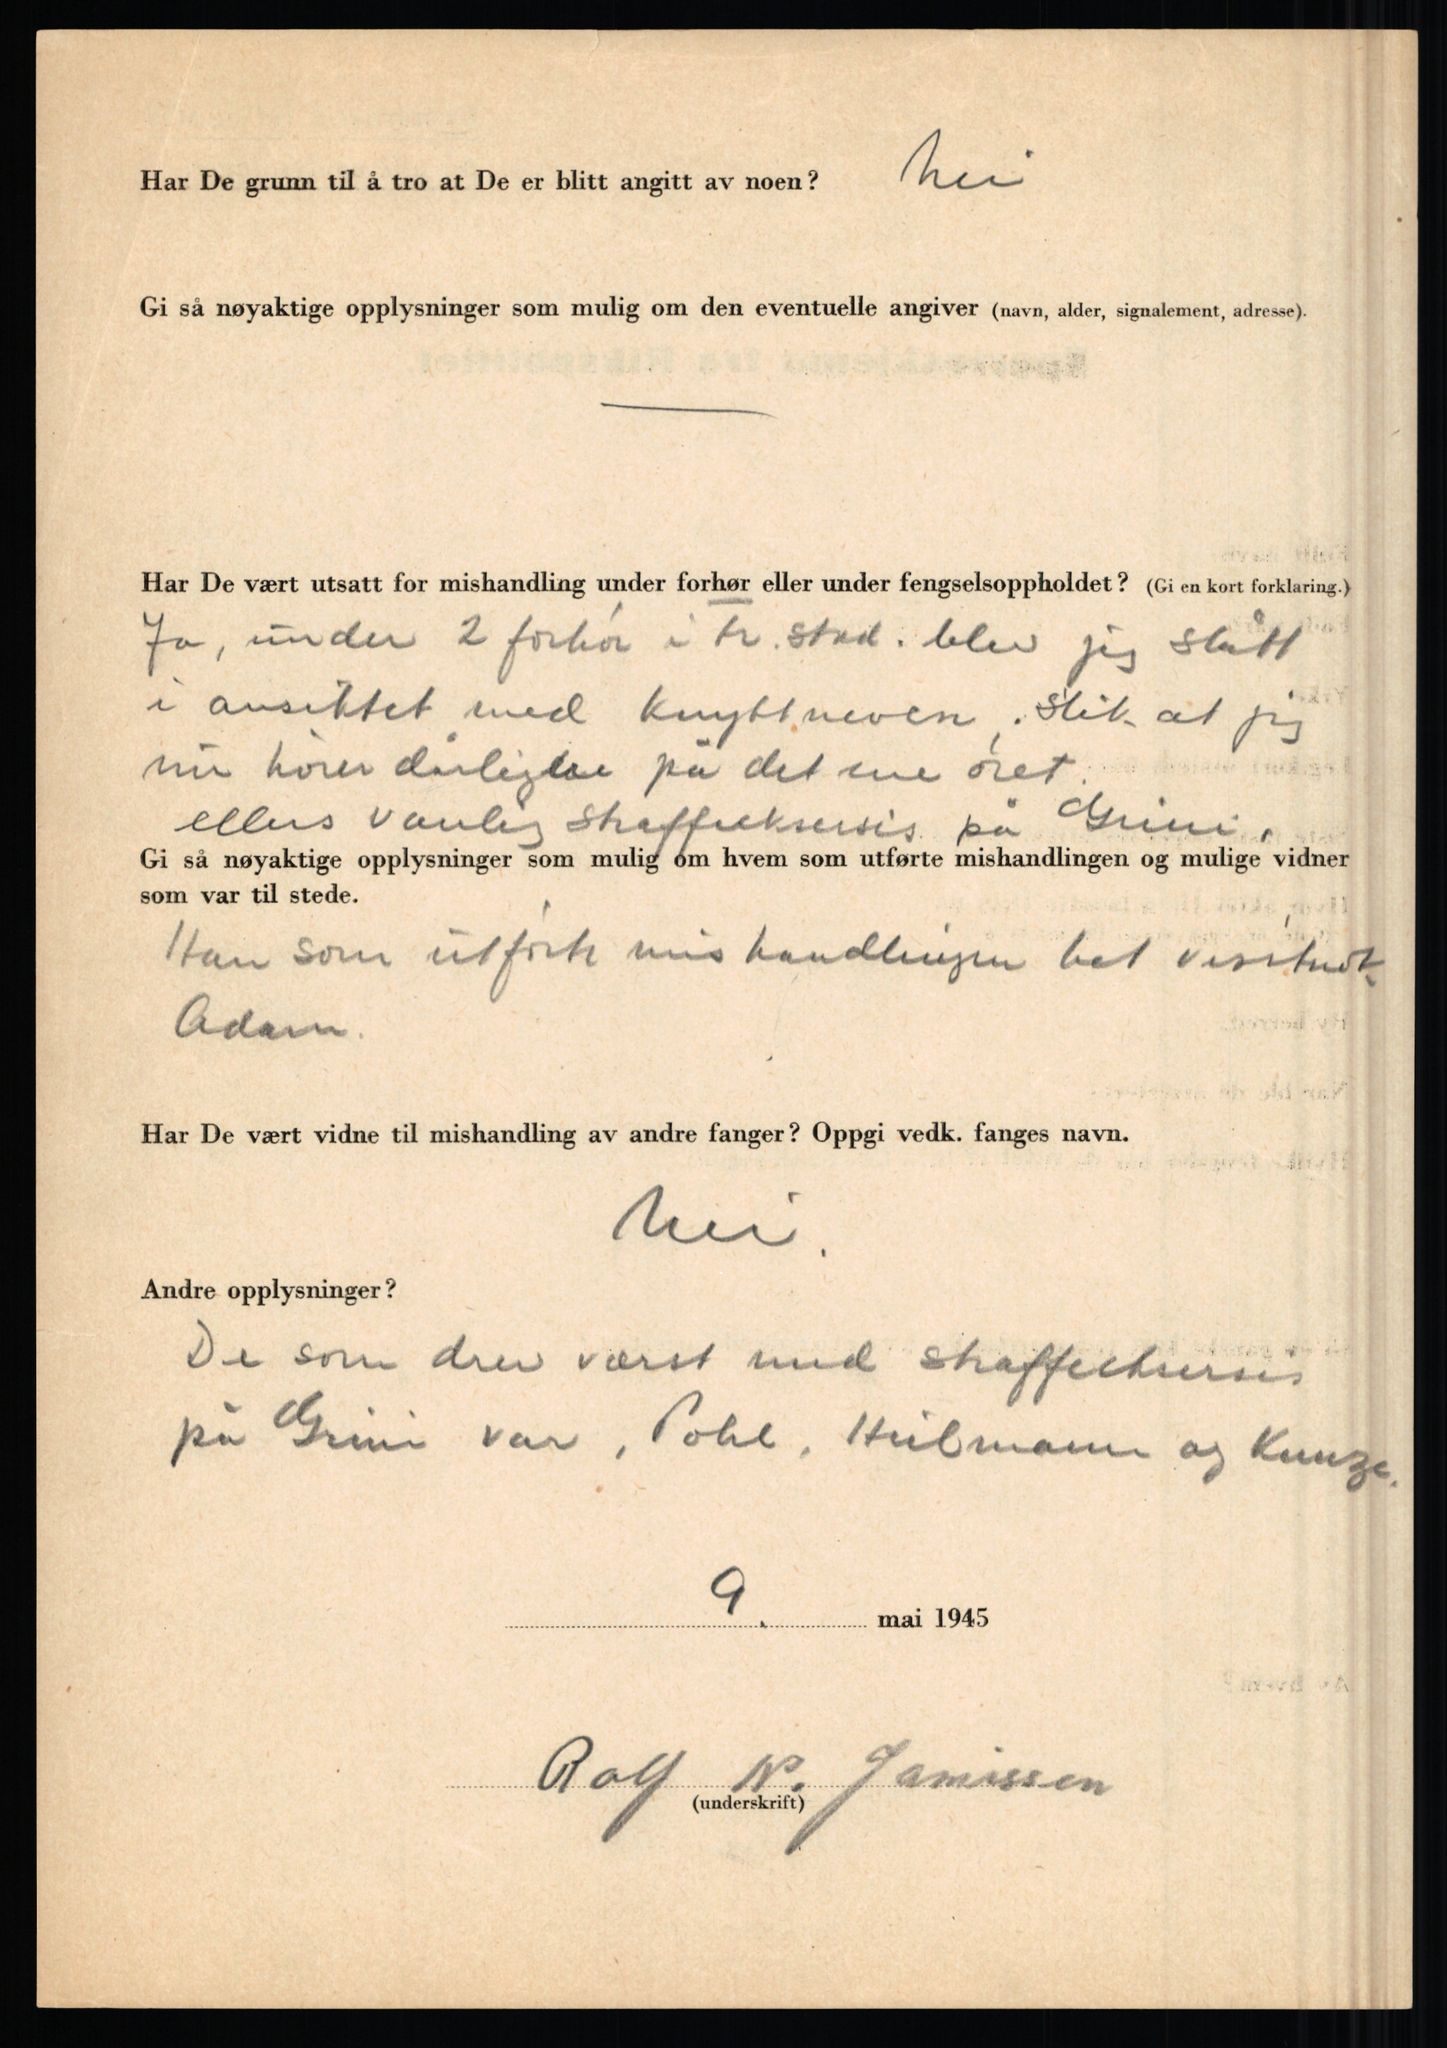 Har De grunn til å tro at De er blitt angitt av noen? Nei
Gi så nøyaktige opplysninger som mulig om den eventuelle angiver (navn, alder, signalement, adresse).
Har De vært utsatt for mishandling under forhør eller under fengselsoppholdet? (Gi en kort forklaring.)
Ja, under 2 forhör i Tr. stad. blev jeg slått
i ansiktet med knyttneven, slik at jeg
nu hörer dårlig på det ene öret.
ellers vanlig straffeeksersis på Grini.
Gi så nøyaktige opplysninger som mulig om hvem som utførte mishandlingen og mulige vidner
som var til stede.
Han som utförte mishandlingen het visstnok
Adam.
Har De vært vidne til mishandling av andre fanger? Oppgi vedk. fanges navn.
Nei.
Andre opplysninger?
De som drev værst med straffeeksersis
på Grini var, Pohl, Heilmann og Kunze.
9. mai 1945
Rolf N. Jamissen
(underskrift)